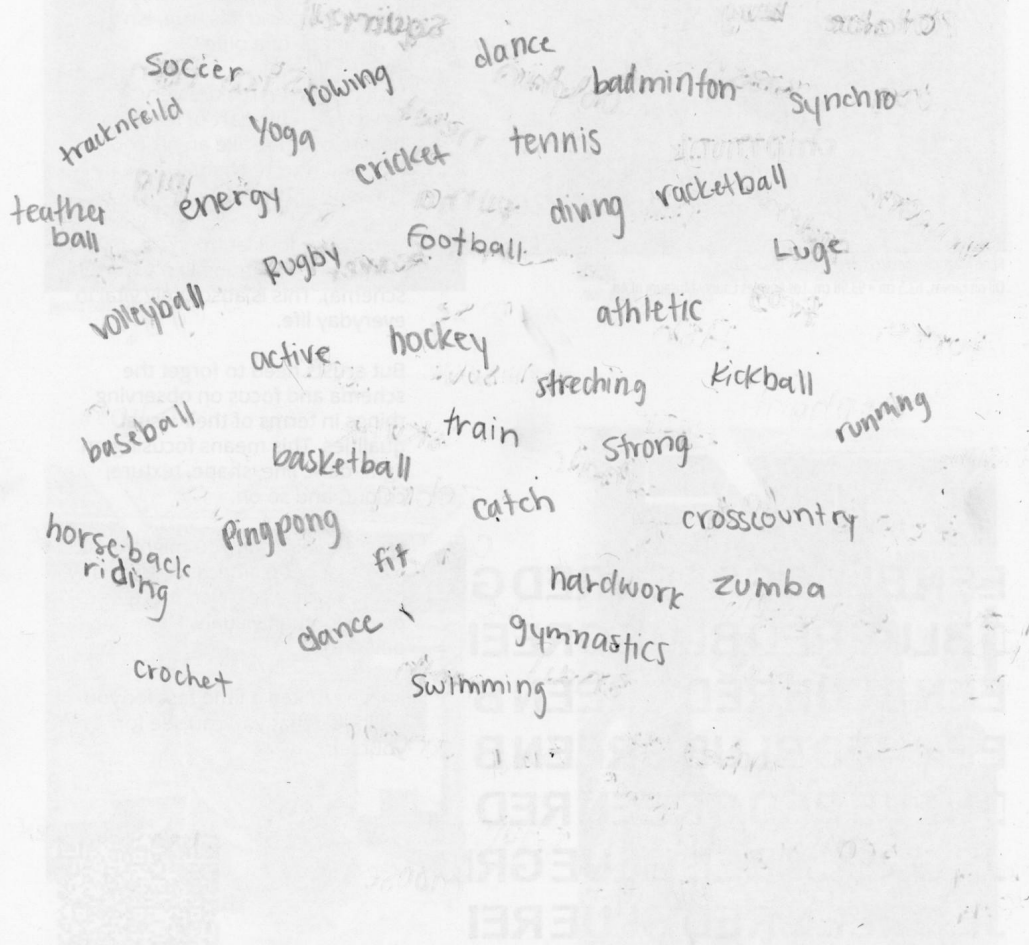 dance
soccer
rowing
badminton
synchro
tracknfeild
Yoga
cricket
tennis
teather
ball
energy
diving
racketball
Rugby
Football
Luge
volleyball
active
hockey
athletic
streching
Kickball
baseball
basketball
train
Strong
running
catch
crosscountry
horseback
riding
Pingpong
fit
hardwork
zumba
dance
gymnastics
crochet
Swimming